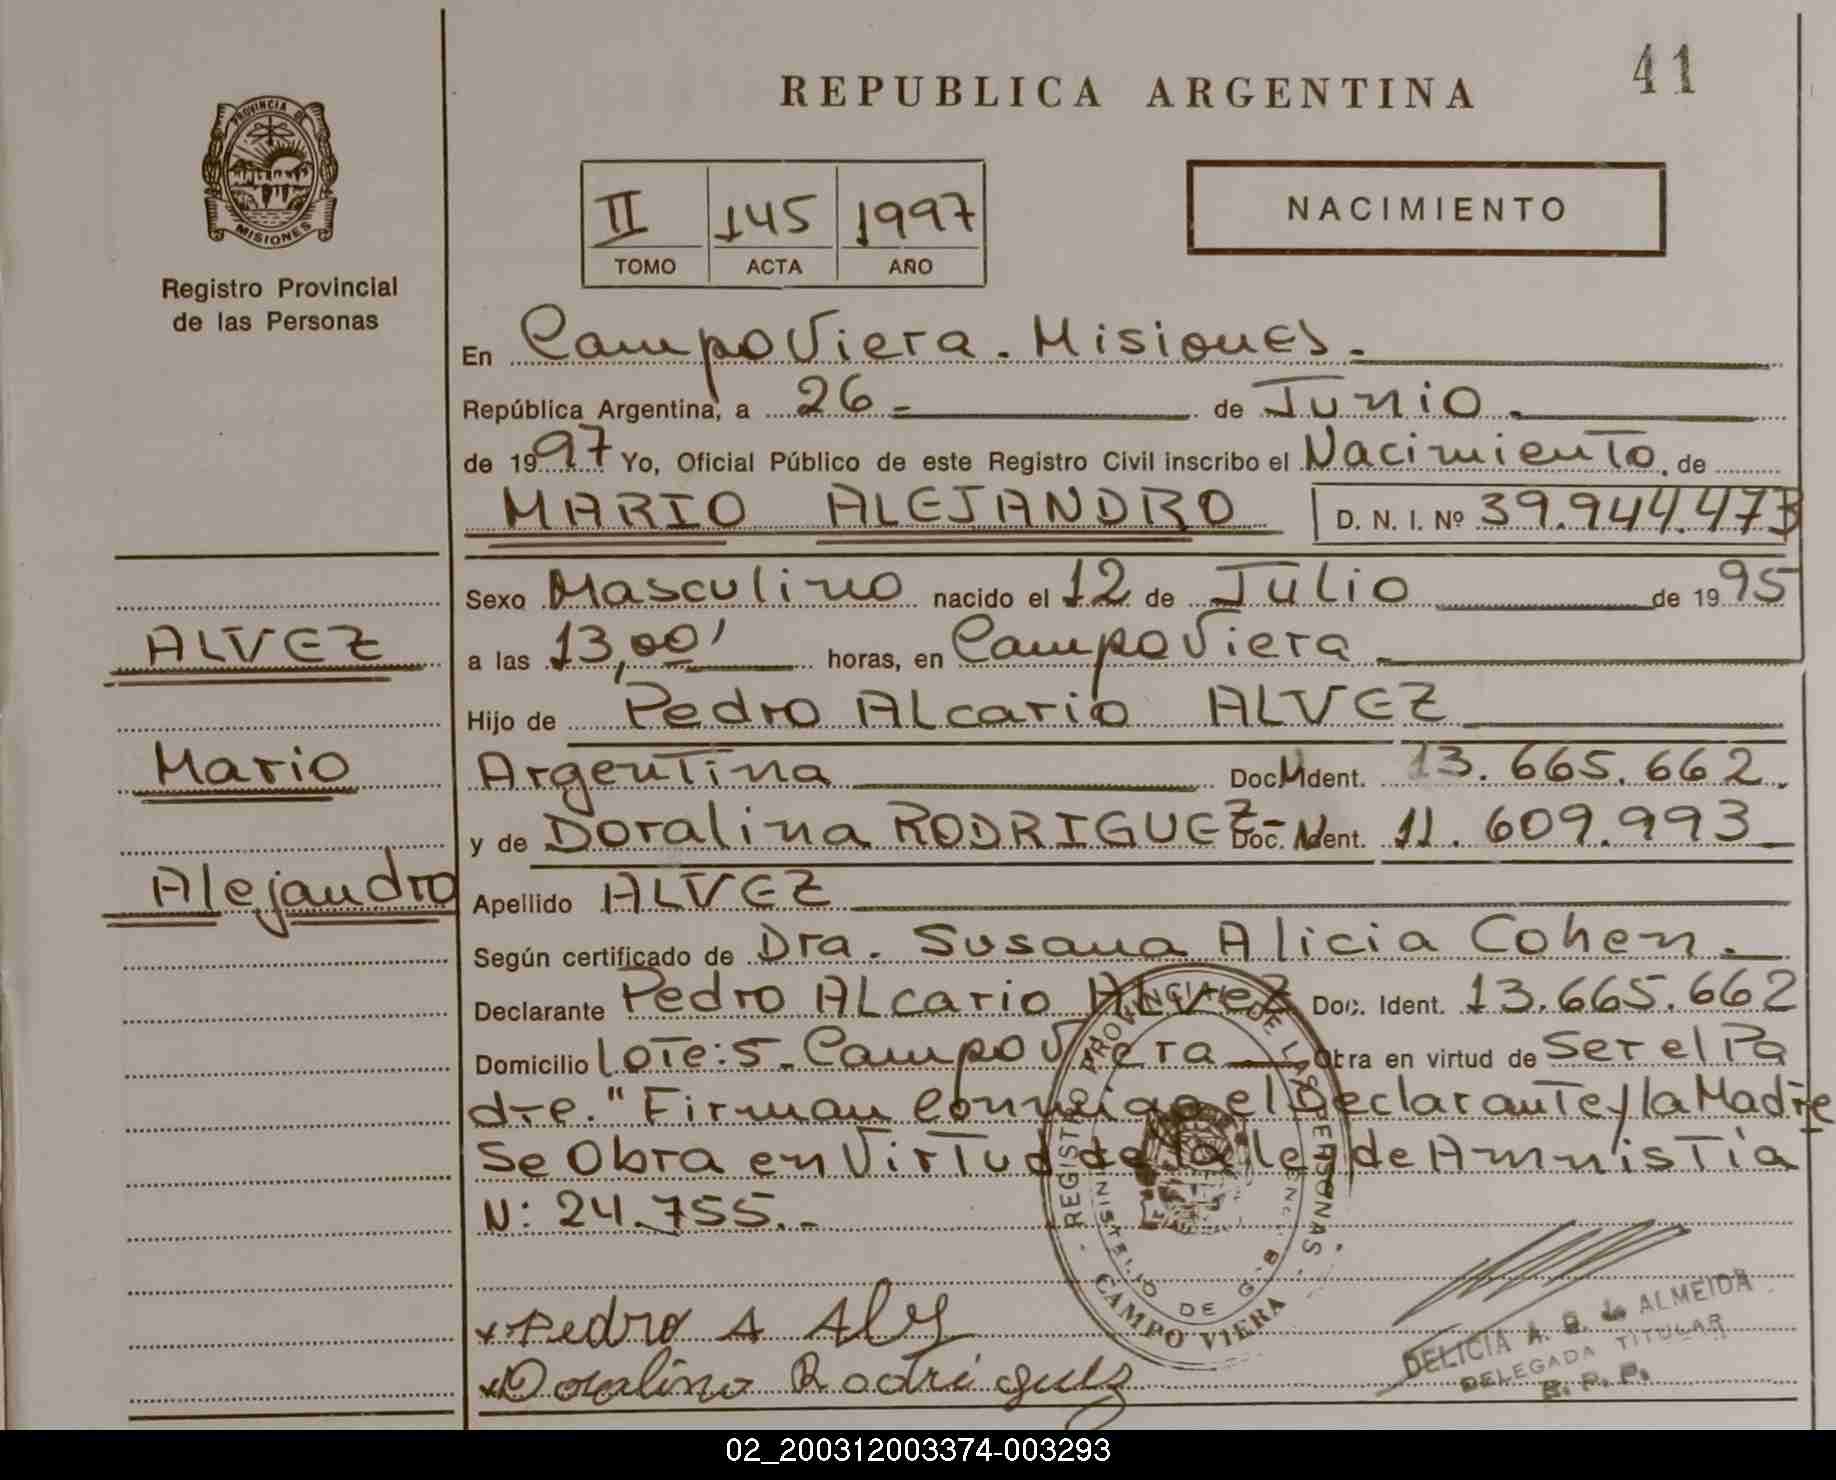 41
REPUBLICA ARGENTINA
PROVINCIA DE
MISIONES
Registro Provincial
de las Personas
NACIMIENTO
II 145 1997
TOMO ACTA AÑO
En Campo Viera. Misiones.
República Argentina, a 26 de Junio.
de 1997 Yo, Oficial Público de este Registro Civil inscribo el Nacimiento, de
MARIO ALEJANDRO D. N. I. Nº 39.944.473
Sexo Masculino nacido el 12 de Julio de 1995
ALVEZ
a las 13,00' horas, en Campo Viera
Hijo de Pedro ALcario ALVEZ
Mario
Argentina Doc. Ident. M 13.665.662.
y de Doralina RODRIGUEZ- Doc. Ident. N 11.609.993
Alejandro
Apellido ALVEZ
Según certificado de Dra. Susana Alicia Cohen.
Declarante Pedro ALcario ALvez Doc. Ident. 13.665.662
Domicilio Lote: 5- Campo Viera Obra en virtud de Ser el Pa
dre." Firman Conmigo el Declarante y la Madre
Se Obra en Virtud de la ley de Amnistia
N: 24.755.-
REGISTRO PROVINCIAL DE LAS PERSONAS
MINISTERIO DE GOB
CAMPO VIERA
Pedro A Alvez
Doralina Rodriguez
DELICIA A. B. de ALMEIDA
DELEGADA TITULAR
R. P. P.
02_200312003374-003293